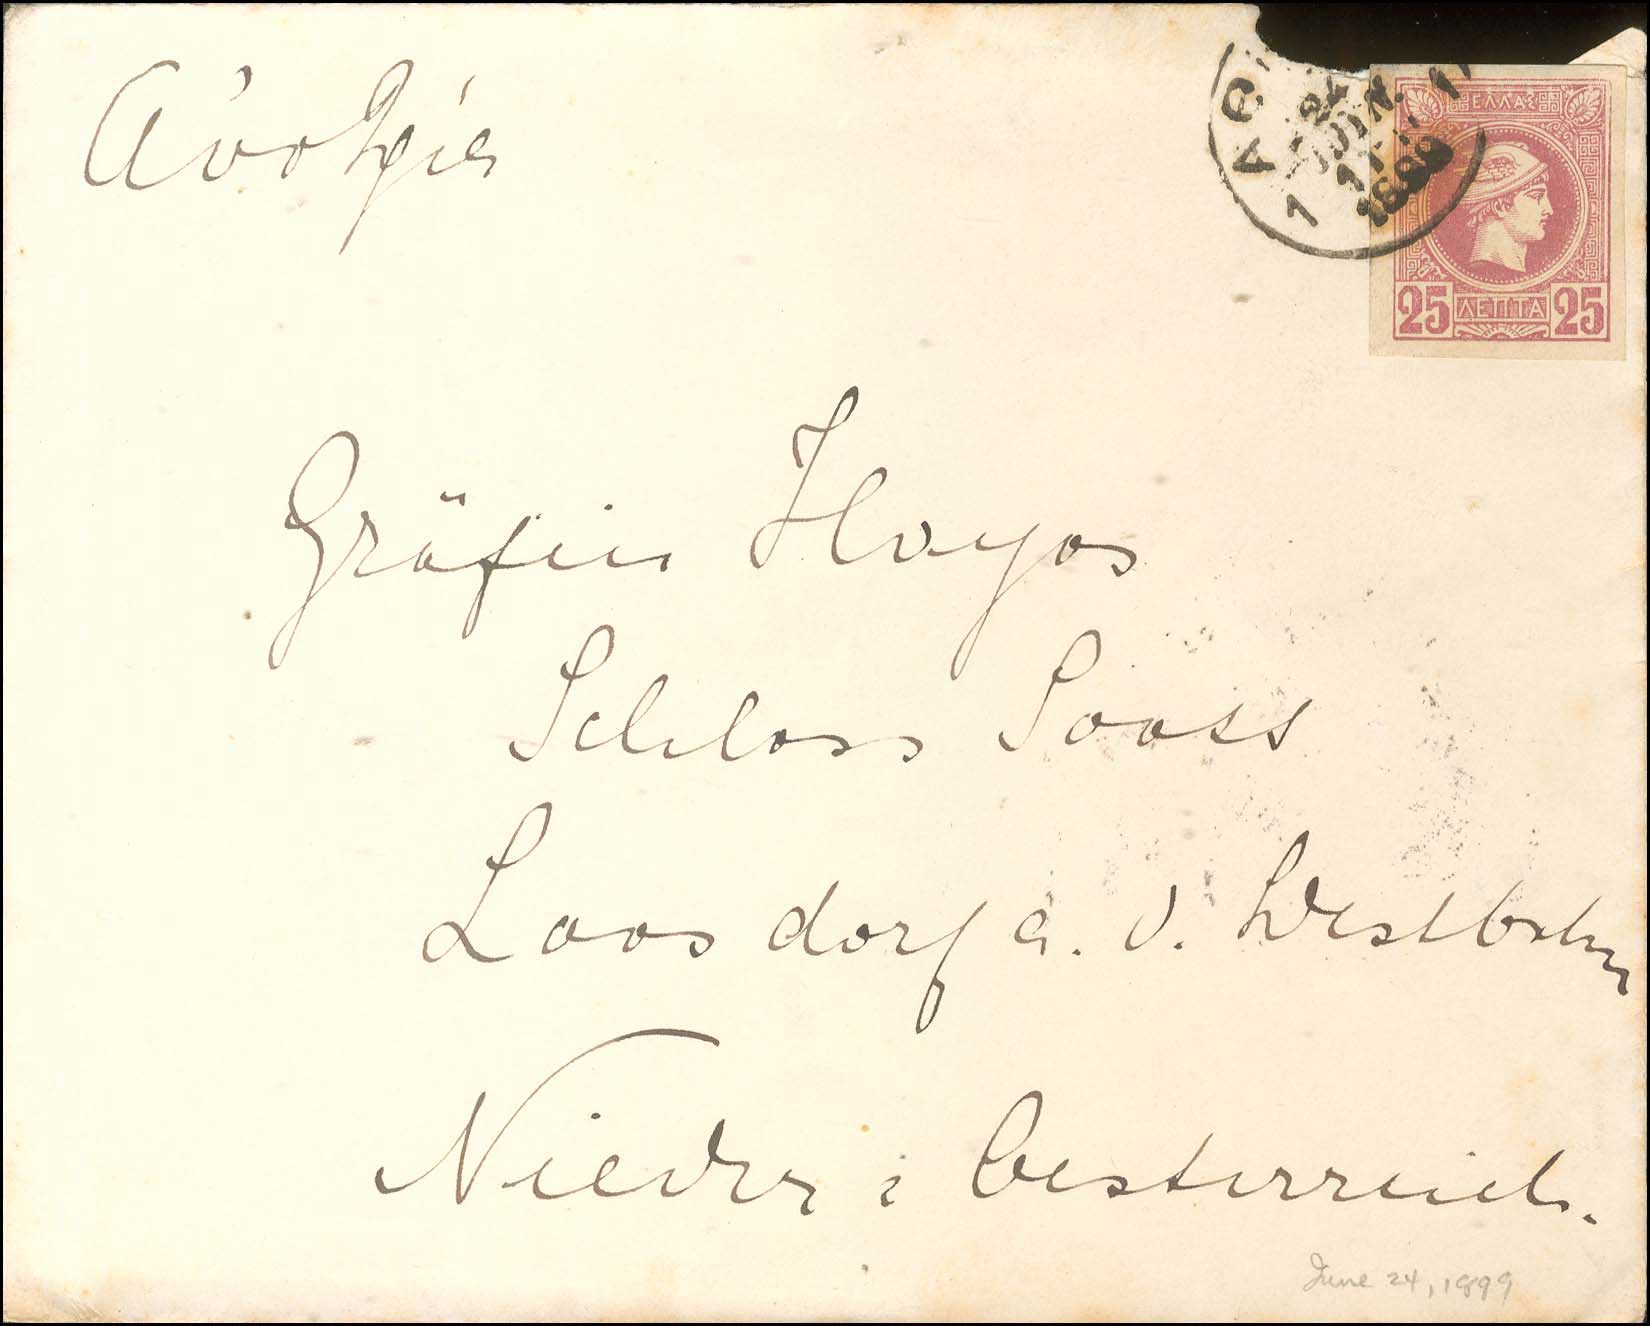 Αὐστρία
ΑΘ
24
ΙΟΥΝ.
1899
1
ΕΛΛΑΣ
25 ΛΕΠΤΑ 25
Gräfin Hoyos
Schloss Sooss
Loosdorf a. d. Westbahn
Nieder: Oesterreich.
June 24, 1899